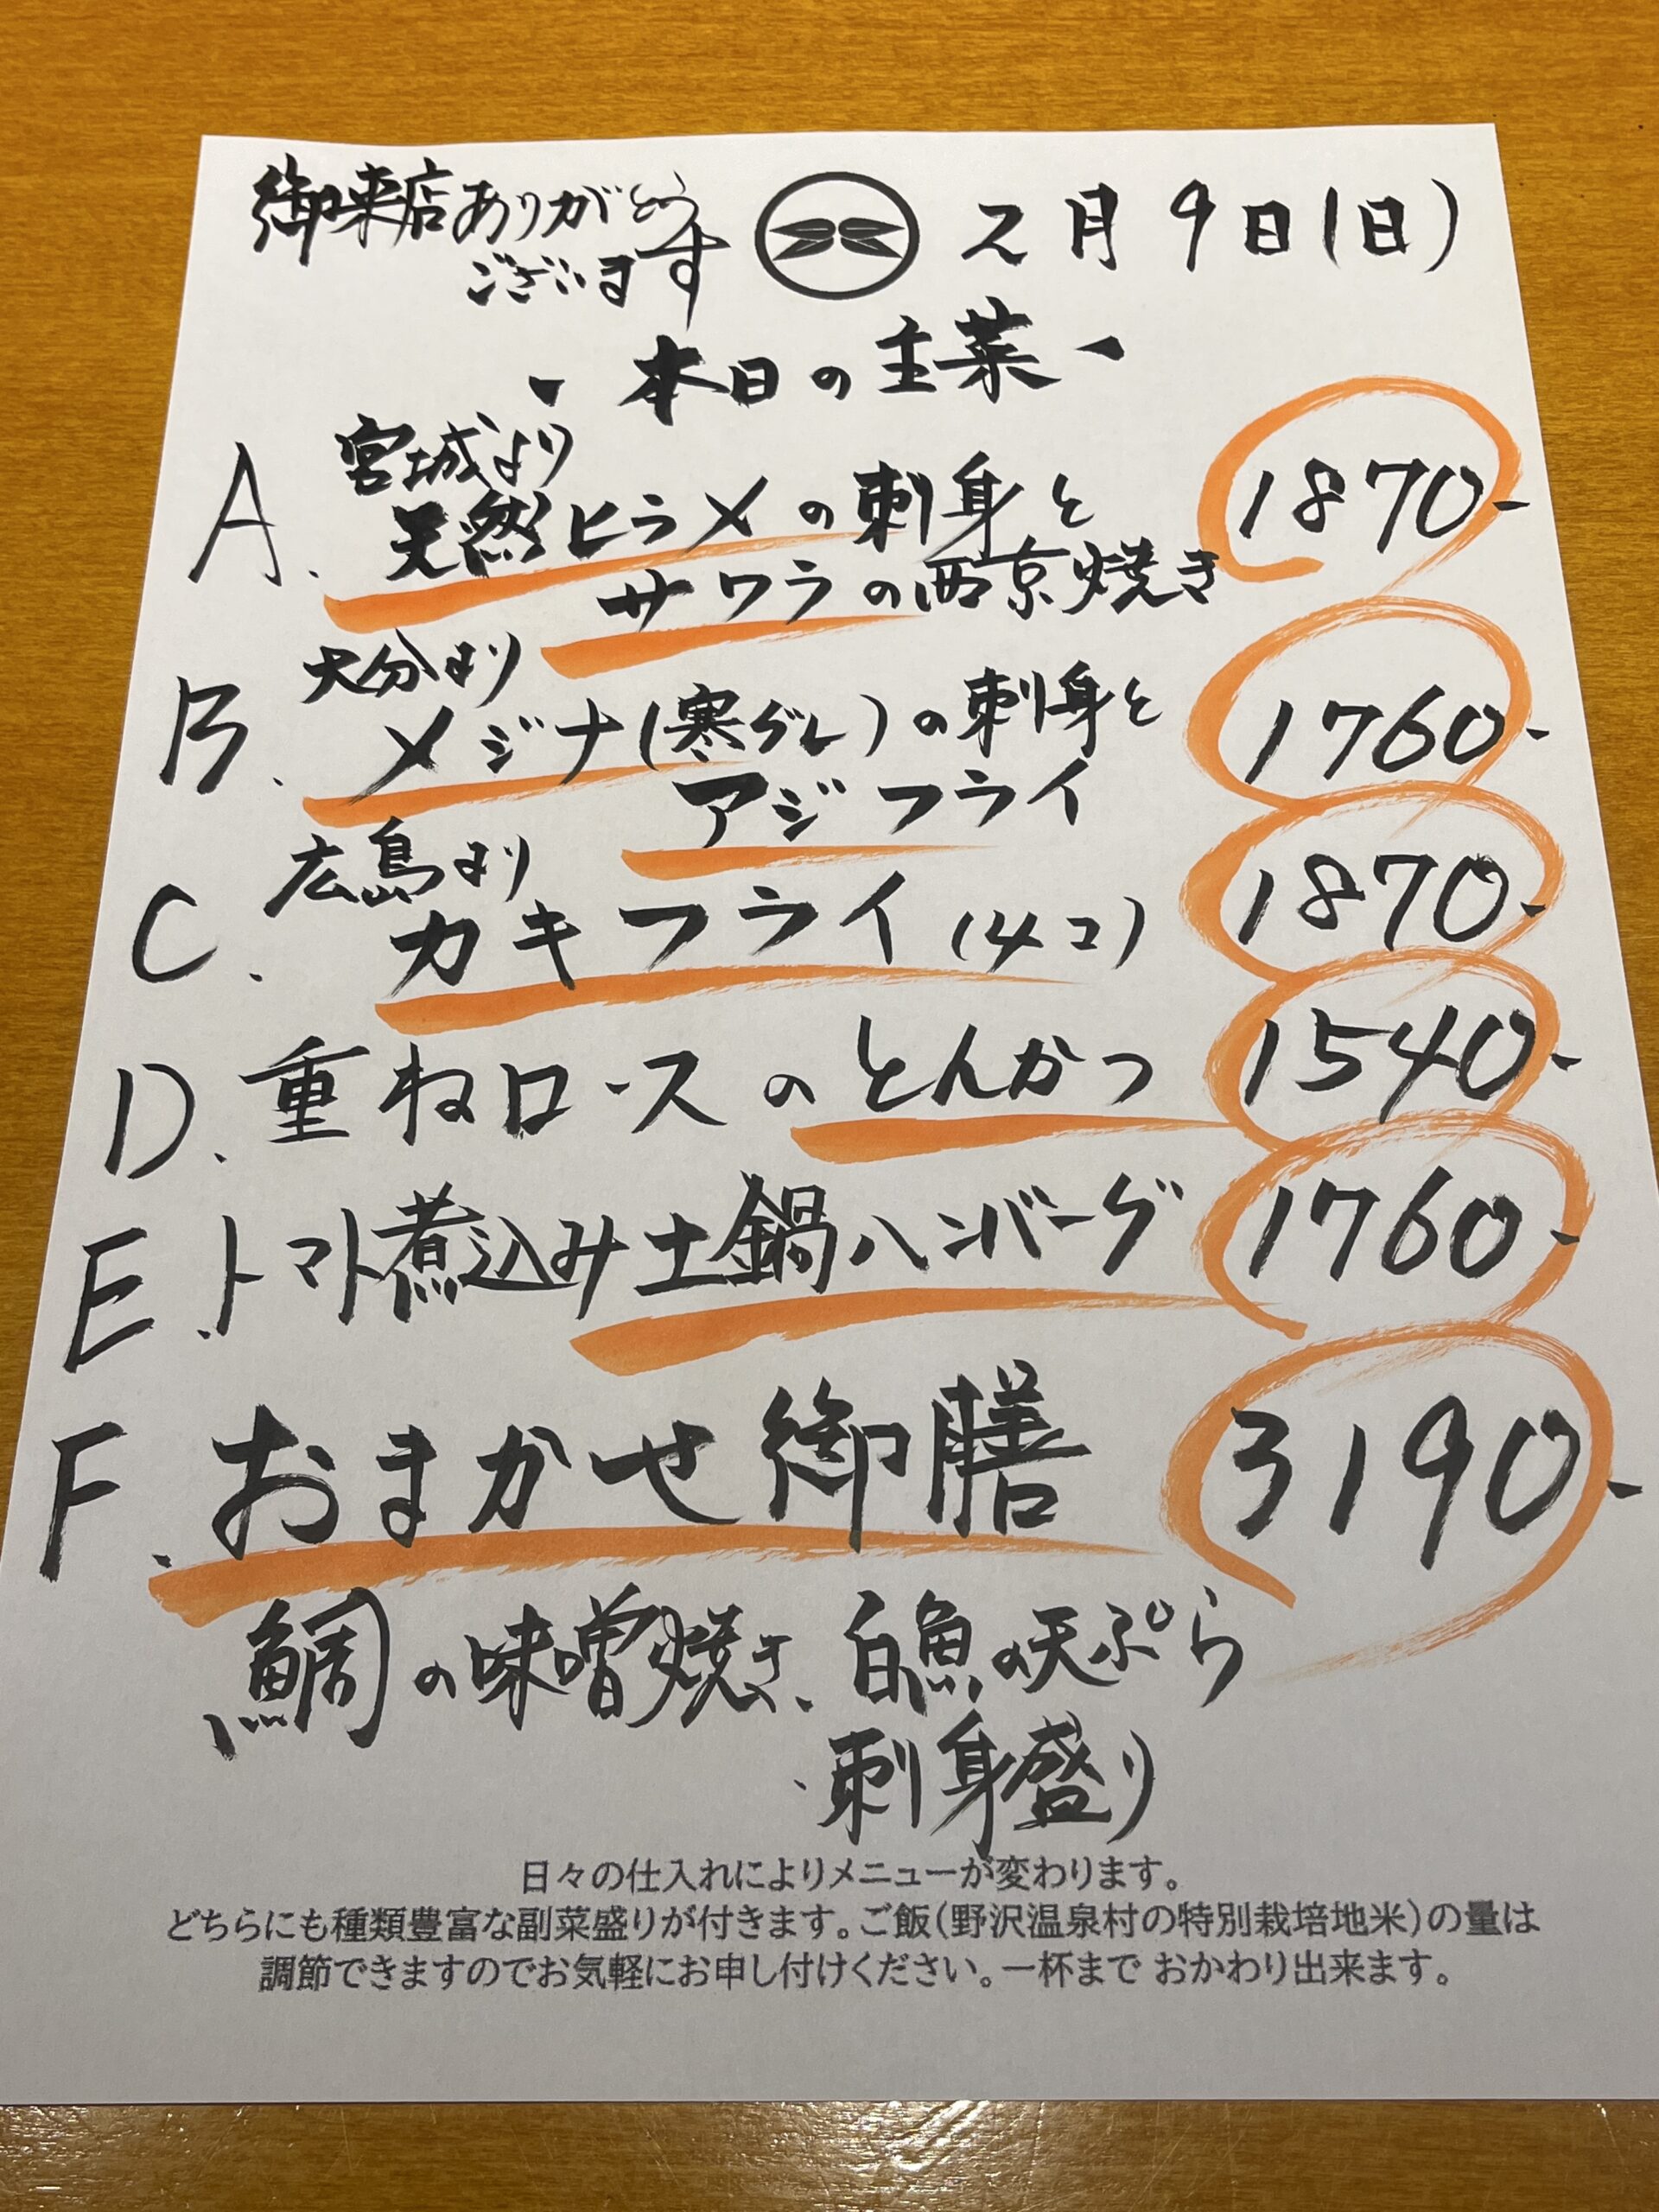 御来店ありがとう
ございます
2月9日(日)
- 本日の主菜 -
A. 宮城より
天然ヒラメの刺身と
サワラの西京焼き
1870-
B. 大分より
メジナ(寒グレ)の刺身と
アジフライ
1760-
C. 広島より
カキフライ(4コ)
1870-
D. 重ねロースのとんかつ 1540-
E. トマト煮込み土鍋ハンバーグ 1760-
F. おまかせ御膳 3190-
鯛の味噌焼き、白魚の天ぷら
、刺身盛り
日々の仕入れによりメニューが変わります。
どちらにも種類豊富な副菜盛りが付きます。ご飯(野沢温泉村の特別栽培地米)の量は
調節できますのでお気軽にお申し付けください。一杯まで おかわり出来ます。